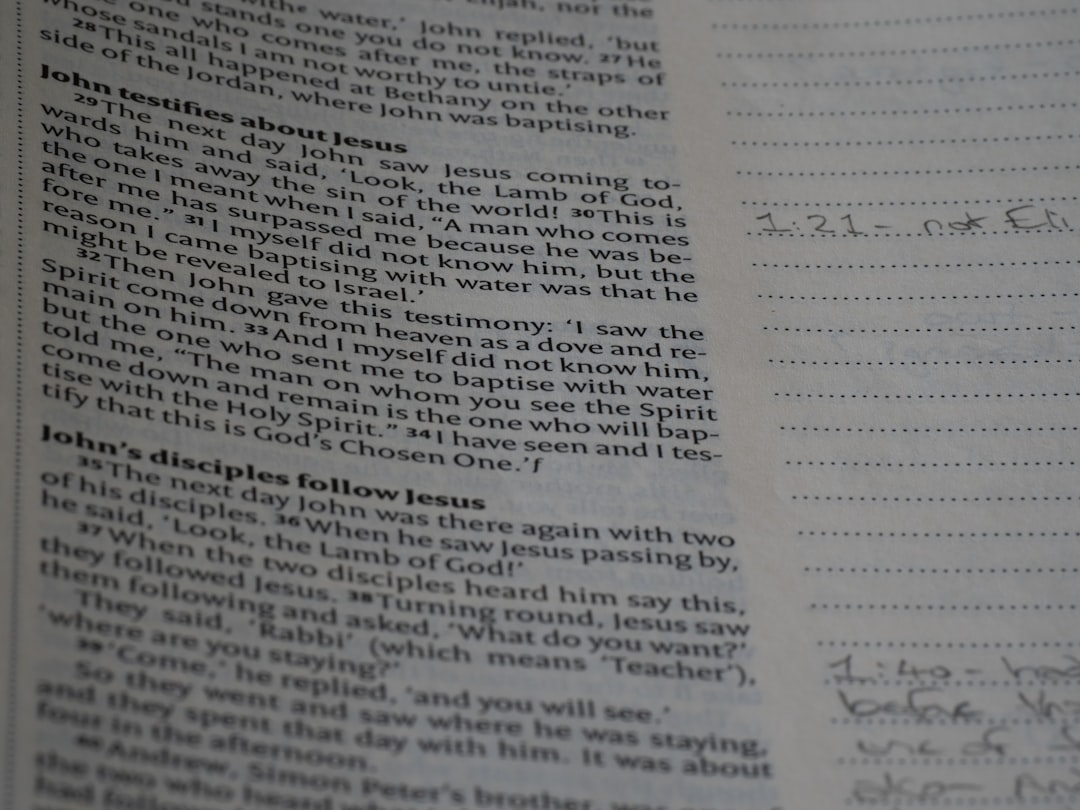 nor the
water,’ John replied, ‘but
stands one you do not know. 27 He
one who comes after me, the straps of
whose sandals I am not worthy to untie.’
28 This all happened at Bethany on the other
side of the Jordan, where John was baptising.
John testifies about Jesus
29 The next day John saw Jesus coming to-
wards him and said, ‘Look, the Lamb of God,
who takes away the sin of the world! 30 This is
the one I meant when I said, “A man who comes
after me has surpassed me because he was be-
fore me.” 31 I myself did not know him, but the
reason I came baptising with water was that he
might be revealed to Israel.’
32 Then John gave this testimony: ‘I saw the
Spirit come down from heaven as a dove and re-
main on him. 33 And I myself did not know him,
but the one who sent me to baptise with water
told me, “The man on whom you see the Spirit
come down and remain is the one who will bap-
tise with the Holy Spirit.” 34 I have seen and I tes-
tify that this is God’s Chosen One.’ f
John’s disciples follow Jesus
35 The next day John was there again with two
of his disciples. 36 When he saw Jesus passing by,
he said, ‘Look, the Lamb of God!’
37 When the two disciples heard him say this,
they followed Jesus. 38 Turning round, Jesus saw
them following and asked, ‘What do you want?’
They said, ‘Rabbi’ (which means ‘Teacher’),
‘where are you staying?’
39 ‘Come,’ he replied, ‘and you will see.’
So they went and saw where he was staying,
and they spent that day with him. It was about
four in the afternoon.
40 Andrew, Simon Peter’s brother, was
the two who heard
had
1:21 - not Eli
1:40 - had
before
use of
also -